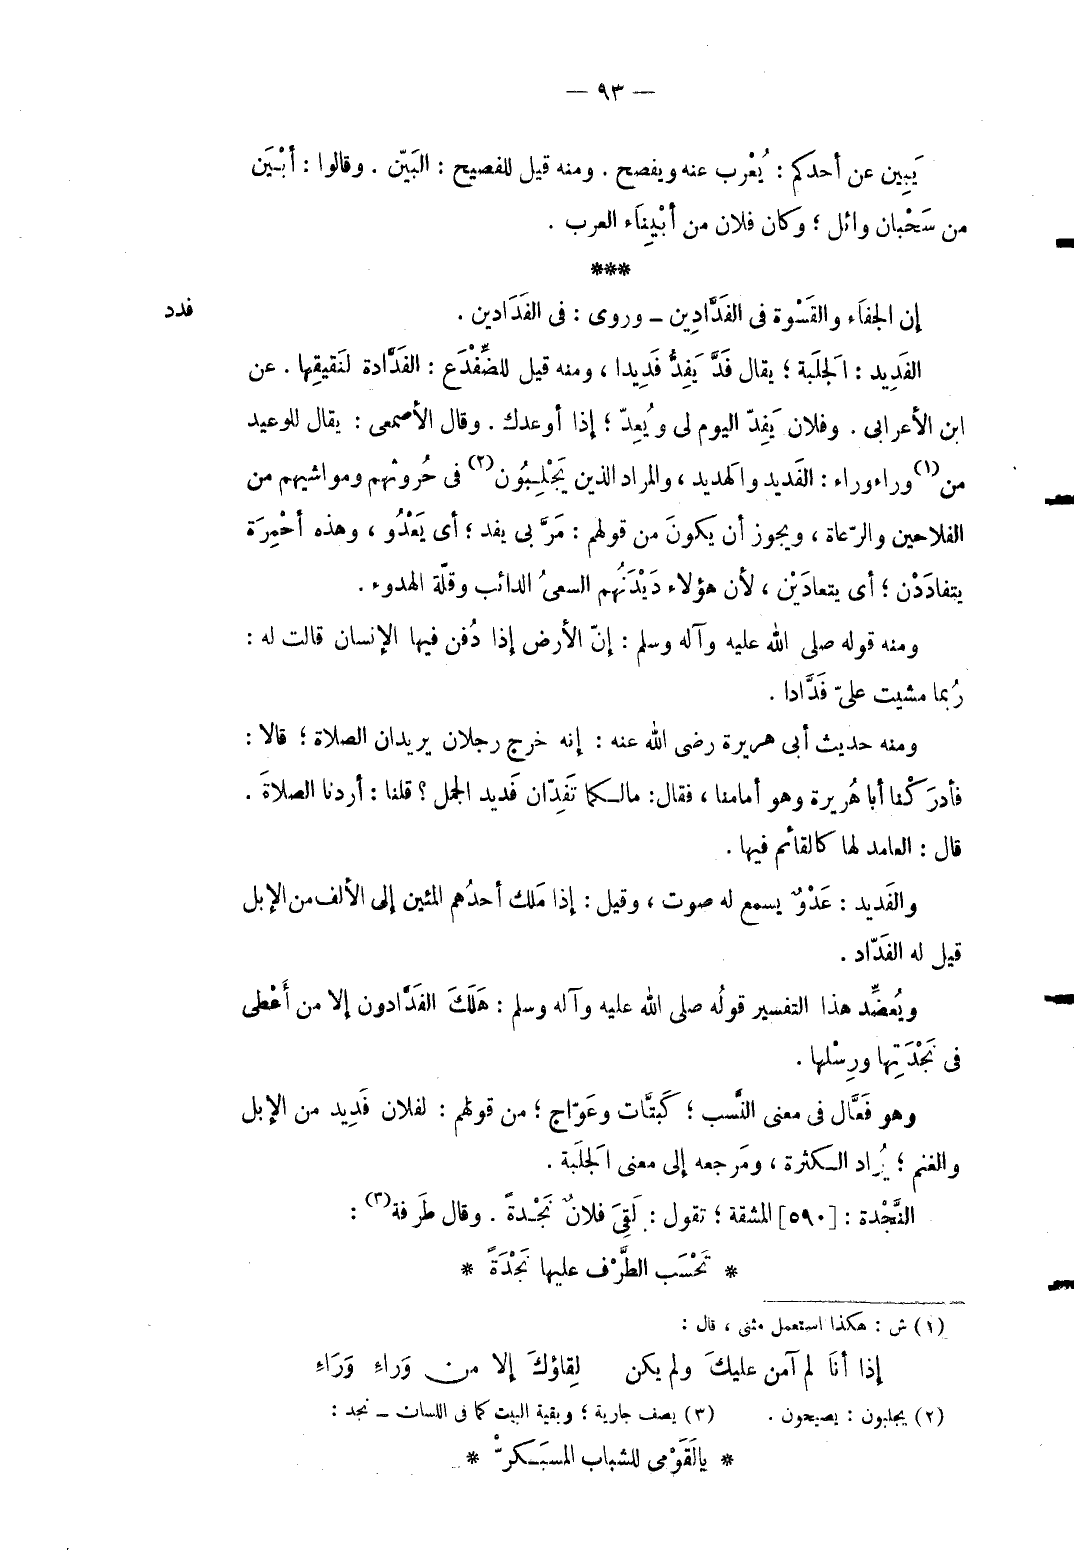 — ٩٣ —
يَبِين عن أحدكم : يُعْرب عنه ويفصح . ومنه قيل للفصيح : البَيّن . وقالوا : أبْيَن
من سَحْبان وائل ؛ وكان فلان من أبْيِنَاء العرب .
***
إن الجفَاء والقَسْوة فى الفَدَّادِين – وروى : فى الفَدَادين .
فدد
الفَدِيد : الجلَبة ؛ يقال فَدَّ يَفِدُّ فَدِيدا ، ومنه قيل للضِّفْدَع : الفَدَّادة لنَقيقِها . عن
ابن الأعرابى . وفلان يَفِدّ اليوم لى ويُعِدّ ؛ إذا أوعدك . وقال الأصمعى : يقال للوعيد
من(١) وراء وراء : الفَديد والهديد ، والمراد الذين يَجْلِبُون(٢) فى حُروثهم ومواشيهم من
الفلاحين والرّعاة ، ويجوز أن يكونَ من قولهم : مَرَّ بى يفد ؛ أى يَعْدُو ، وهذه أحْمِرَة
يتفادَدْن ؛ أى يتعادَيْن ، لأن هؤلاء دَيْدَنُهم السعىُ الدائب وقلّة الهدوء .
ومنه قوله صلى الله عليه وآله وسلم : إنّ الأرض إذا دُفن فيها الإنسان قالت له :
رُبما مشيت علىّ فَدَّادا .
ومنه حديث أبى هريرة رضى الله عنه : إنه خرج رجلان يريدان الصلاة ؛ قالا :
فأدرَكْنا أبا هُريرة وهو أمامنا ، فقال : مالكما تَفِدّان فَديد الجمل ؟ قلنا : أردنا الصلاةَ .
قال : العامد لها كالقائم فيها .
والفَديد : عَدْوٌ يسمع له صوت ، وقيل : إذا مَلك أحدُهم المئين إلى الألف من الإبل
قيل له الفَدّاد .
ويُعضِّد هذا التفسير قولُه صلى الله عليه وآله وسلم : هَلَكَ الفَدَّادون إلا من أَعْطى
فى نَجْدَتِها ورِسْلها .
وهو فَعَّال فى معنى النَّسب ؛ كَبتَّات وعَوّاج ؛ من قولهم : لفلان فَدِيد من الإبل
والغنم ؛ يُراد الكثرة ، ومَرجعه إلى معنى الجلَبة .
النَّجْدة : [٥٩٠] المشقة ؛ تقول : لَقِىَ فلانٌ نَجْدةً . وقال طَرَفة(٣) :
* تَحْسَب الطَّرْف عليها نَجْدَةً *
(١) ش : هكذا استعمل مثنى ، قال :
إذا أنَا لم آمن عليكَ ولم يكن لِقاؤكَ إلا من وَراءِ وَرَاءِ
(٢) يجلبون : يصيحون . (٣) يصف جارية ؛ وبقية البيت كما فى اللسان – نجد :
* يالَقَوْمى للشباب المسبَكرّْ *